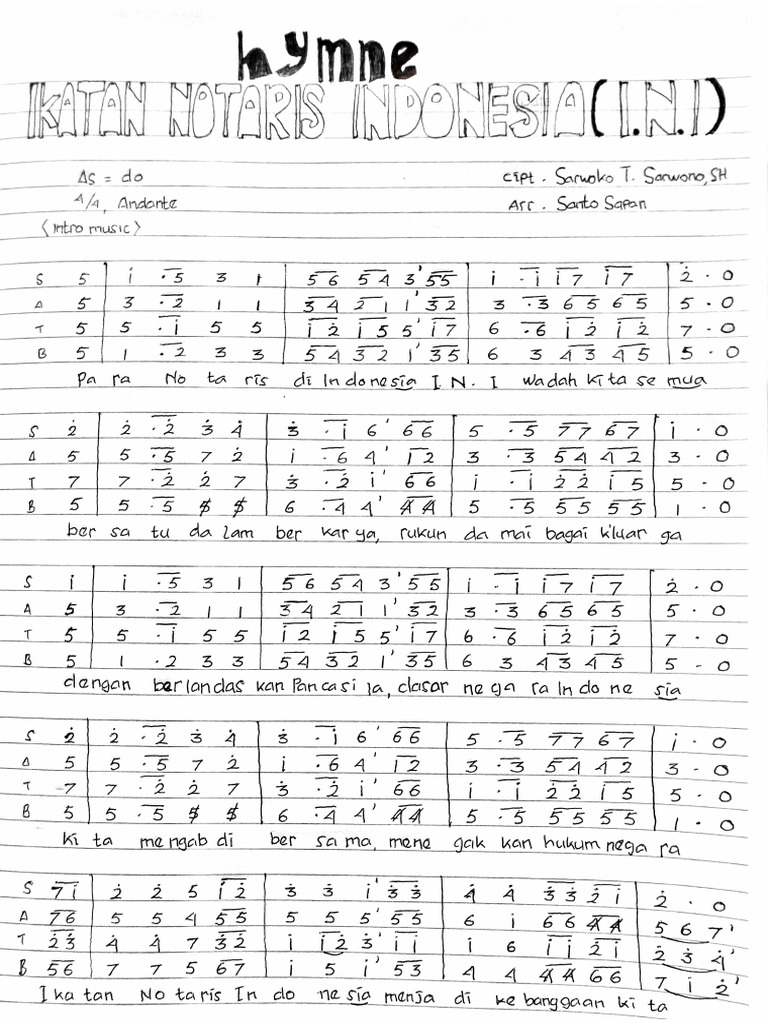 hymne
IKATAN NOTARIS INDONESIA (I.N.I)
As = do
4/4, Andante
<intro music>
Cipt. Sarwoko T. Sarwono, SH
Arr. Santo Sapan
S 5 | i̇ .5 3 1 | 56 54 3'55 | i̇ .i̇ i̇7 i̇7 | 2̇ . 0
A 5 | 3 .2 1 1 | 34 21 1'32 | 3 .3 65 65 | 5 . 0
T 5 | 5 .i̇ 5 5 | i̇2̇ i̇5 5'i̇7 | 6 .6 i̇2̇ i̇2̇ | 7 . 0
B 5 | 1 .2 3 3 | 54 32 1'35 | 6 3 43 45 | 5 . 0
Pa ra No taris di Indonesia I.N.I wadah kita se mua
S 2̇ | 2̇ .2̇ 3̇ 4̇ | 3̇ .i̇ 6' 66 | 5 .5 77 67 | i̇ . 0
A 5 | 5 .5 7 2̇ | i̇ .6 4' i̇2̇ | 3 .3 54 42 | 3 . 0
T 7 | 7 .2̇ 2̇ 7 | 3̇ .2̇ i̇' 66 | i̇ .i̇ 2̇2̇ i̇5 | 5 . 0
B 5 | 5 .5 5̸ 5̸ | 6 .4 4' 4̸4̸ | 5 .5 55 55 | 1 . 0
ber sa tu da lam ber kar ya, rukun da mai bagai k'luar ga
S i̇ | i̇ .5 3 1 | 56 54 3'55 | i̇ .i̇ i̇7 i̇7 | 2̇ . 0
A 5 | 3 .2 1 1 | 34 21 1'32 | 3 .3 65 65 | 5 . 0
T 5 | 5 .i̇ 5 5 | i̇2̇ i̇5 5'i̇7 | 6 .6 i̇2̇ i̇2̇ | 7 . 0
B 5 | 1 .2 3 3 | 54 32 1'35 | 6 3 43 45 | 5 - 0
dengan berlandas kan Pancasi la, dasar nega ra Indo ne sia
S 2̇ | 2̇ .2̇ 3̇ 4̇ | 3̇ .i̇ 6 66 | 5 .5 77 67 | i̇ . 0
A 5 | 5 .5 7 2̇ | i̇ .6 4' i̇2̇ | 3 .3 54 42 | 3 . 0
T 7 | 7 .2̇ 2̇ 7 | 3̇ .2̇ i̇' 66 | i̇ .i̇ 2̇2̇ i̇5 | 5 . 0
B 5 | 5 .5 5̸ 5̸ | 6 .4 4' 4̸4̸ | 5 .5 55 55 | 1 . 0
Ki ta mengab di ber sama, mene gak kan hukum nega ra
S 7i̇ | 2̇ 2̇ 5 i̇2̇ | 3̇ 3̇ i̇'3̇3̇ | 4̇ 4̇ 3̇3̇ 2̇i̇ | 2̇ . 0
A 76 | 5 5 4 55 | 5 5 5'55 | 6 i̇ 66 4̸4̸ | 5 6 7'
T 2̇3̇ | 4̇ 4̇ 7 3̇2̇ | i̇ i̇2̇ 3̇'i̇i̇ | i̇ 6 i̇i̇ 2̇i̇ | 2̇ 3̇ 4̇'
B 56 | 7 7 5 67 | i̇ 5 i̇'53 | 4 4 4̸4̸ 66 | 7 i̇ 2̇'
I katan Notaris In do nesia menja di ke banggaan ki ta